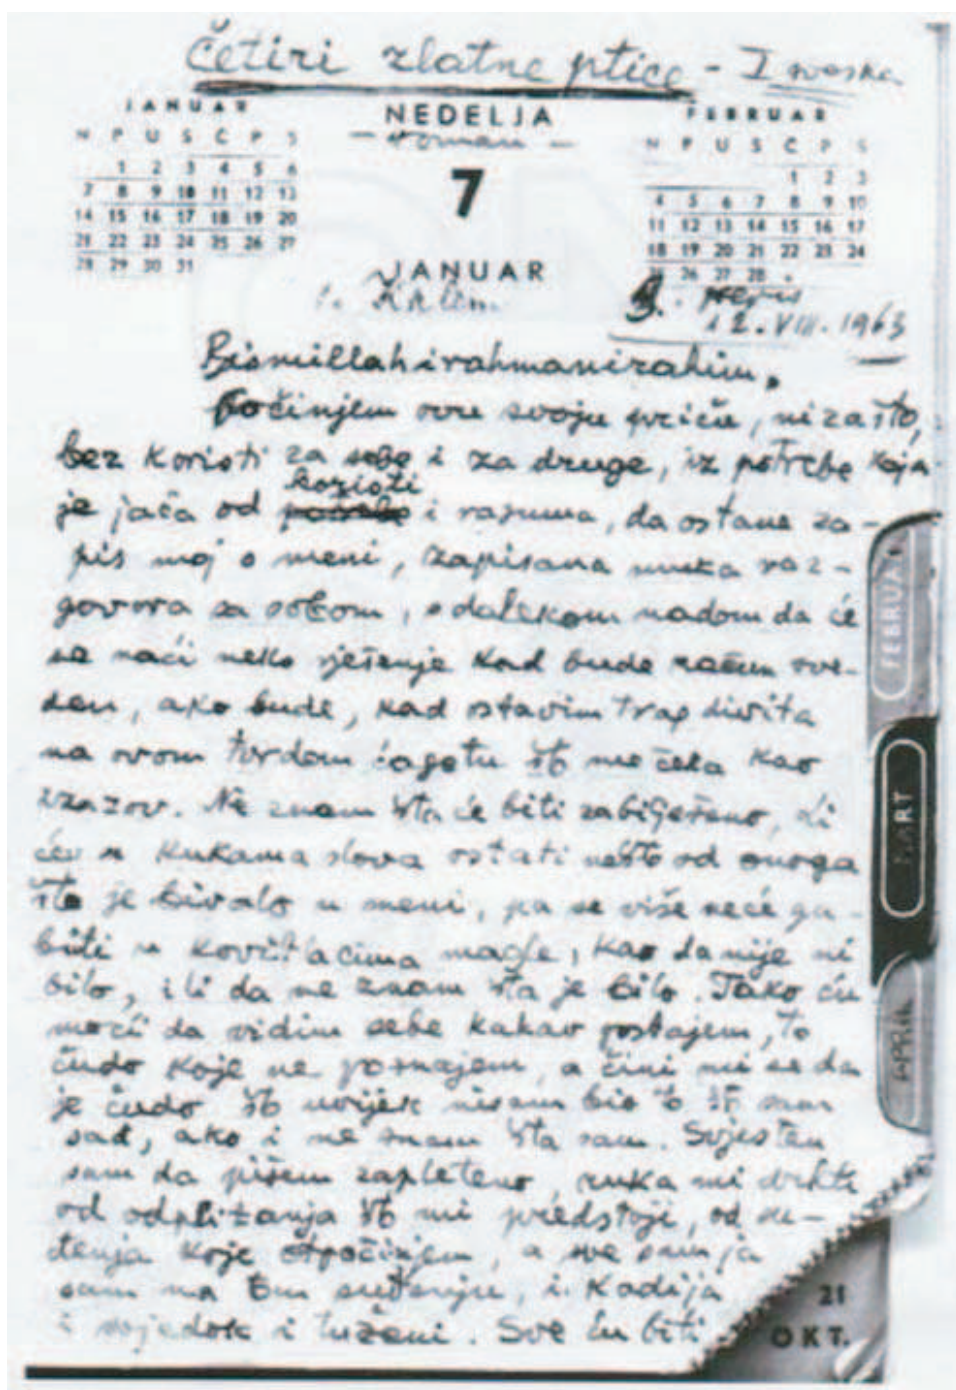 Četiri zlatne ptice – I sveska
JANUAR NEDELJA FEBRUAR
N P U S Č P S – roman – N P U S Č P S
1 2 3 4 5 6 7 1 2 3
7 8 9 10 11 12 13 4 5 6 7 8 9 10
14 15 16 17 18 19 20 11 12 13 14 15 16 17
21 22 23 24 25 26 27 18 19 20 21 22 23 24
28 29 30 31 JANUAR 25 26 27 28
1.
12. VIII. 1963
Bismillahirahmanirahim,
Počinjem ovu svoju priču, nizašto,
bez koristi za sebe i za druge, iz potrebe koja
koristi
je jača od potrebe i razuma, da ostane za-
pis moj o meni, zapisana muka raz-
govora sa sobom, s dalekom nadom da će
se naći neko rješenje kad bude račun sve-
den, ako bude, kad ostavim trag divita
na ovom tvrdom ćagetu što me čeka kao
izazov. Ne znam šta će biti zabilježeno, ali
će u kukama slova ostati nešto od onoga
što je bivalo u meni, pa se više neće gu-
biti u kovitlacima magle, kao da nije ni
bilo, ili da ne znam šta je bilo. Tako ću
moći da vidim sebe kakav postajem, to
čudo koje ne poznajem, a čini mi se da
je čudo što uvijek nisam bio to što sam
sad, ako i ne znam šta sam. Svjestan
sam da pišem zapleteno, ruka mi drhti
od odplitanja što mi predstoji, od su-
đenja koje otpočinjem, a sve sam ja
sam na tom suđenju, i kadija
i svjedok i tuženi. Sve ću biti
FEBRUAR
MART
APRIL
21
OKT.